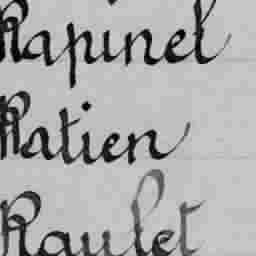 Rapinel
Ratien
Raulet